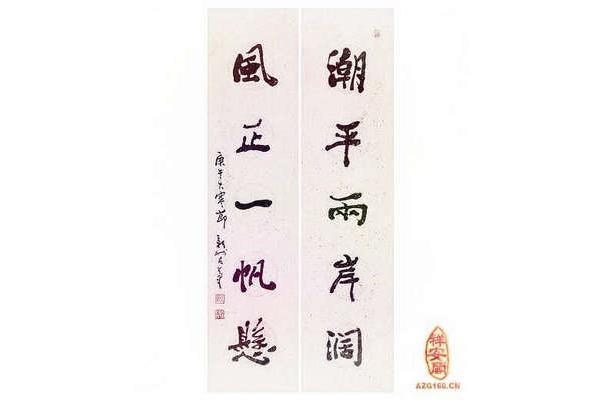 潮平兩岸闊
風正一帆懸
庚午大寒節
祥安閣
AZG168.CN